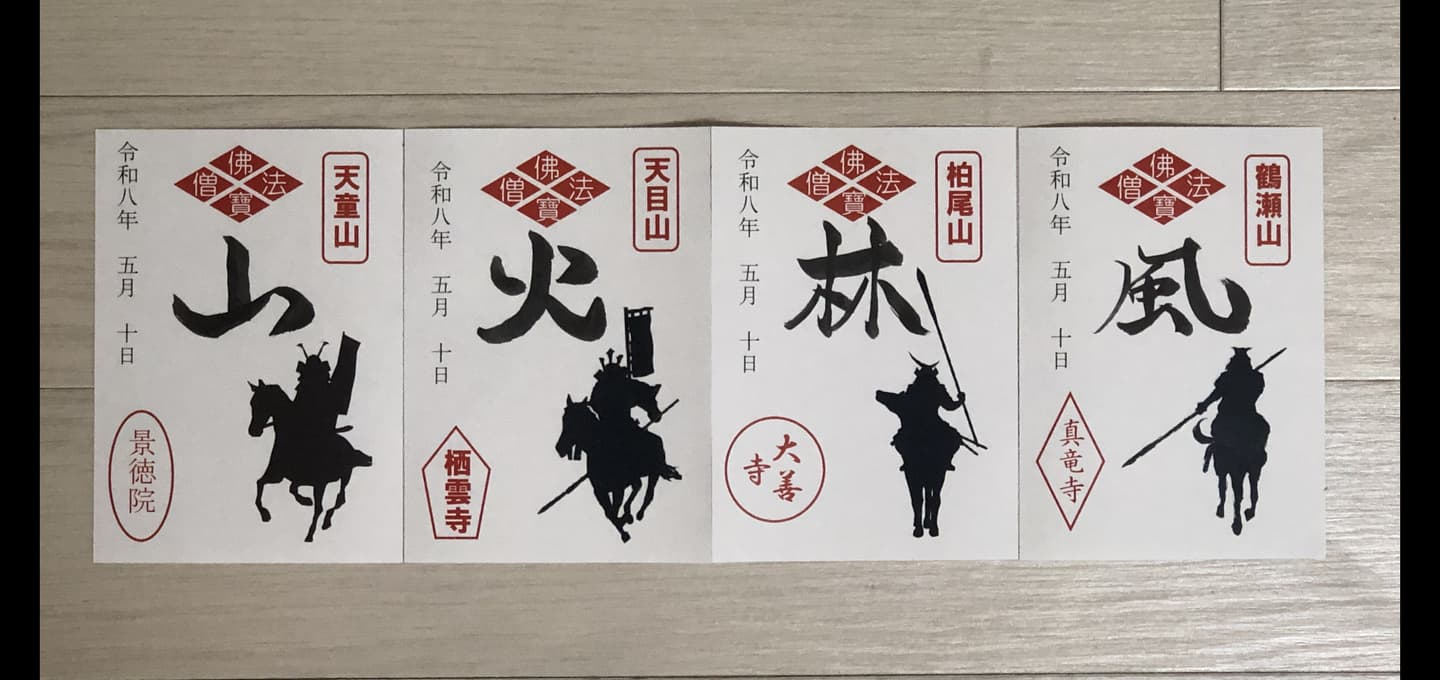 鶴瀬山
佛法僧寶
風
令和八年 五月 十日
真竜寺
柏尾山
佛法僧寶
林
令和八年 五月 十日
大善寺
天目山
佛法僧寶
火
令和八年 五月 十日
栖雲寺
天童山
佛法僧寶
山
令和八年 五月 十日
景徳院